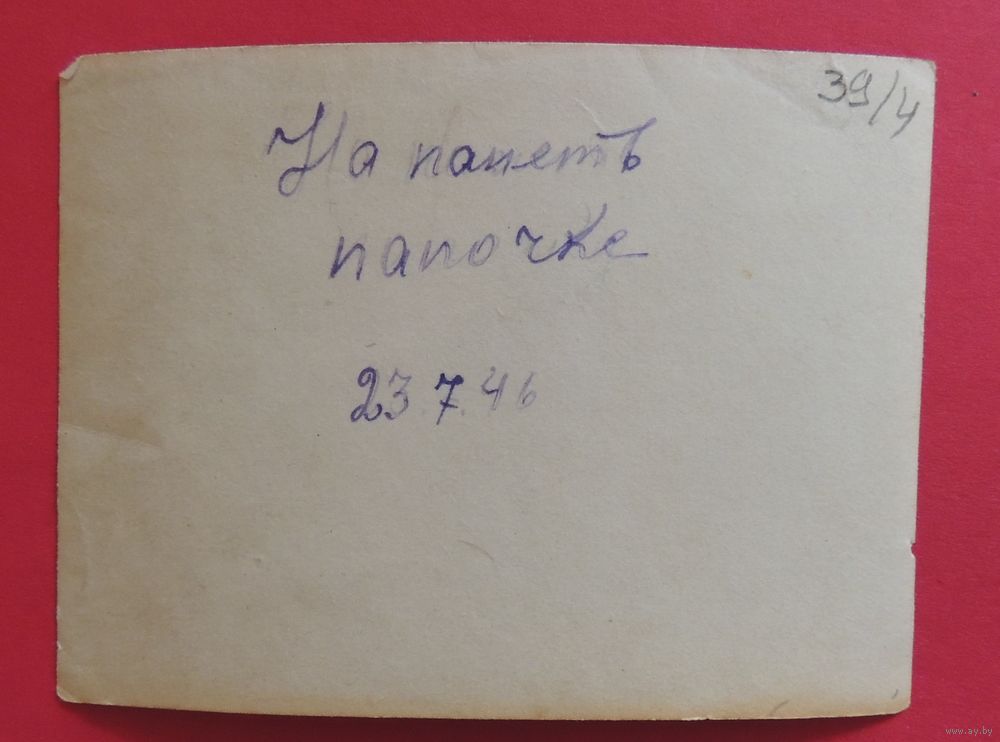 39/4
На паметь
папочке
23.7.46
www.ay.by